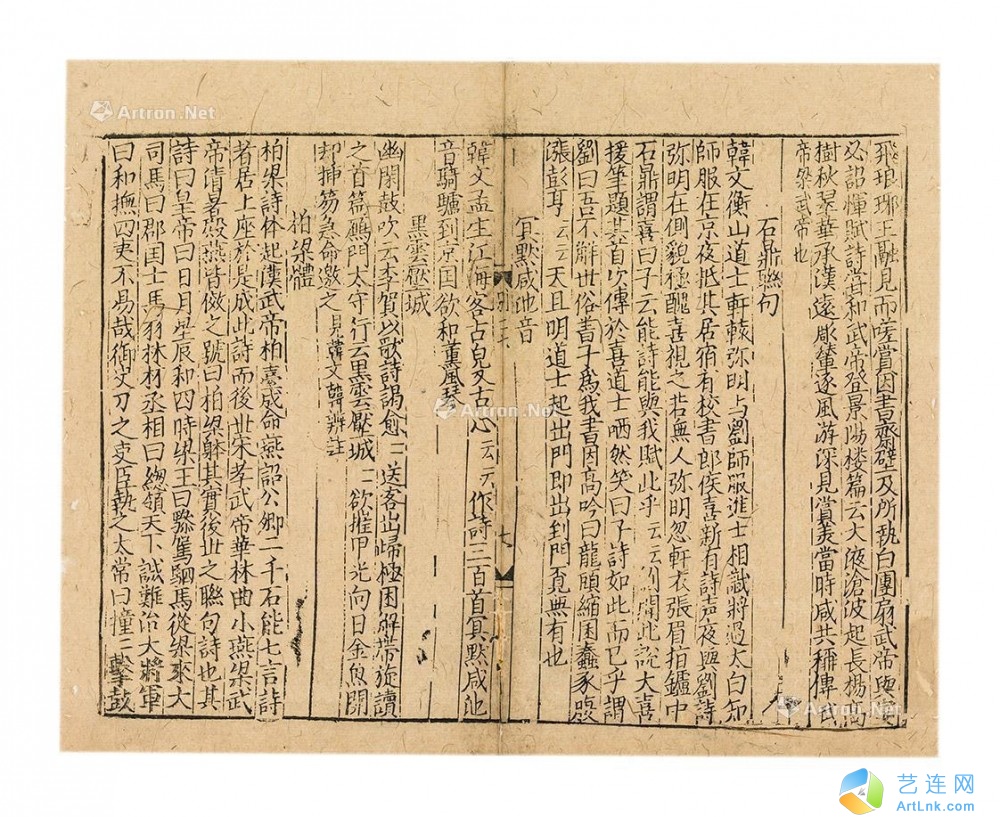 飛琅琊王融見而嗟賞因書齋壁及所執白團扇武帝與宴
必詔惲賦詩嘗和武帝登景陽楼篇云大液滄波起長楊高
樹秋翠華承漢遠彫輦逐風游深見賞美當時咸共稱傳
帝梁武帝也
石鼎聮句
韓文衡山道士軒轅弥明与劉師服進士相識將過太白知
師服在京夜抵其居宿有校書郎侯喜新有詩声夜與劉詩
弥明在側貌極醜喜視之若無人弥明忽軒衣張眉指鑪中
石鼎謂喜曰子云能詩能與我賦此乎云云劉聞此說大喜
援筆題其首次傳於喜道士哂然笑曰子詩如此而已乎謂
劉曰吾不觧世俗書子為我書因高吟曰龍頭縮菌蠢豕腹
漲彭亨云云天且明道士起出門即出到門覔無有也
冥默咸池音
韓文孟生江海客古皃又古心云云作詩三百首冥默咸池
音騎驢到京国欲和薰風琴
黒雲壓城
幽閑鼓吹云李賀以歌詩謁愈一送客出歸極困觧帶旋讀
之首篇鴈門太守行云黒雲壓城一欲摧甲光向日金魚開
却揷笏急命邀之見韓文韓辨註
柏梁體
柏梁詩体起漢武帝柏臺成命燕詔公卿二千石能七言詩
者居上座於是成此詩而後世宋孝武帝華林曲小燕梁武
帝清暑殿燕皆傚之號曰柏梁躰其實後世之聮句詩也其
詩曰皇帝曰日月星辰和四時梁王曰驂駕駟馬從梁來大
司馬曰郡囯士馬羽林材丞相曰緫領天下誠難治大將軍
曰和撫四夷不易哉御史刀之吏臣執之太常曰撞
擊鼓
Artron.Net
Artron.Net
Artron.Net
艺连网
ArtLnk.com